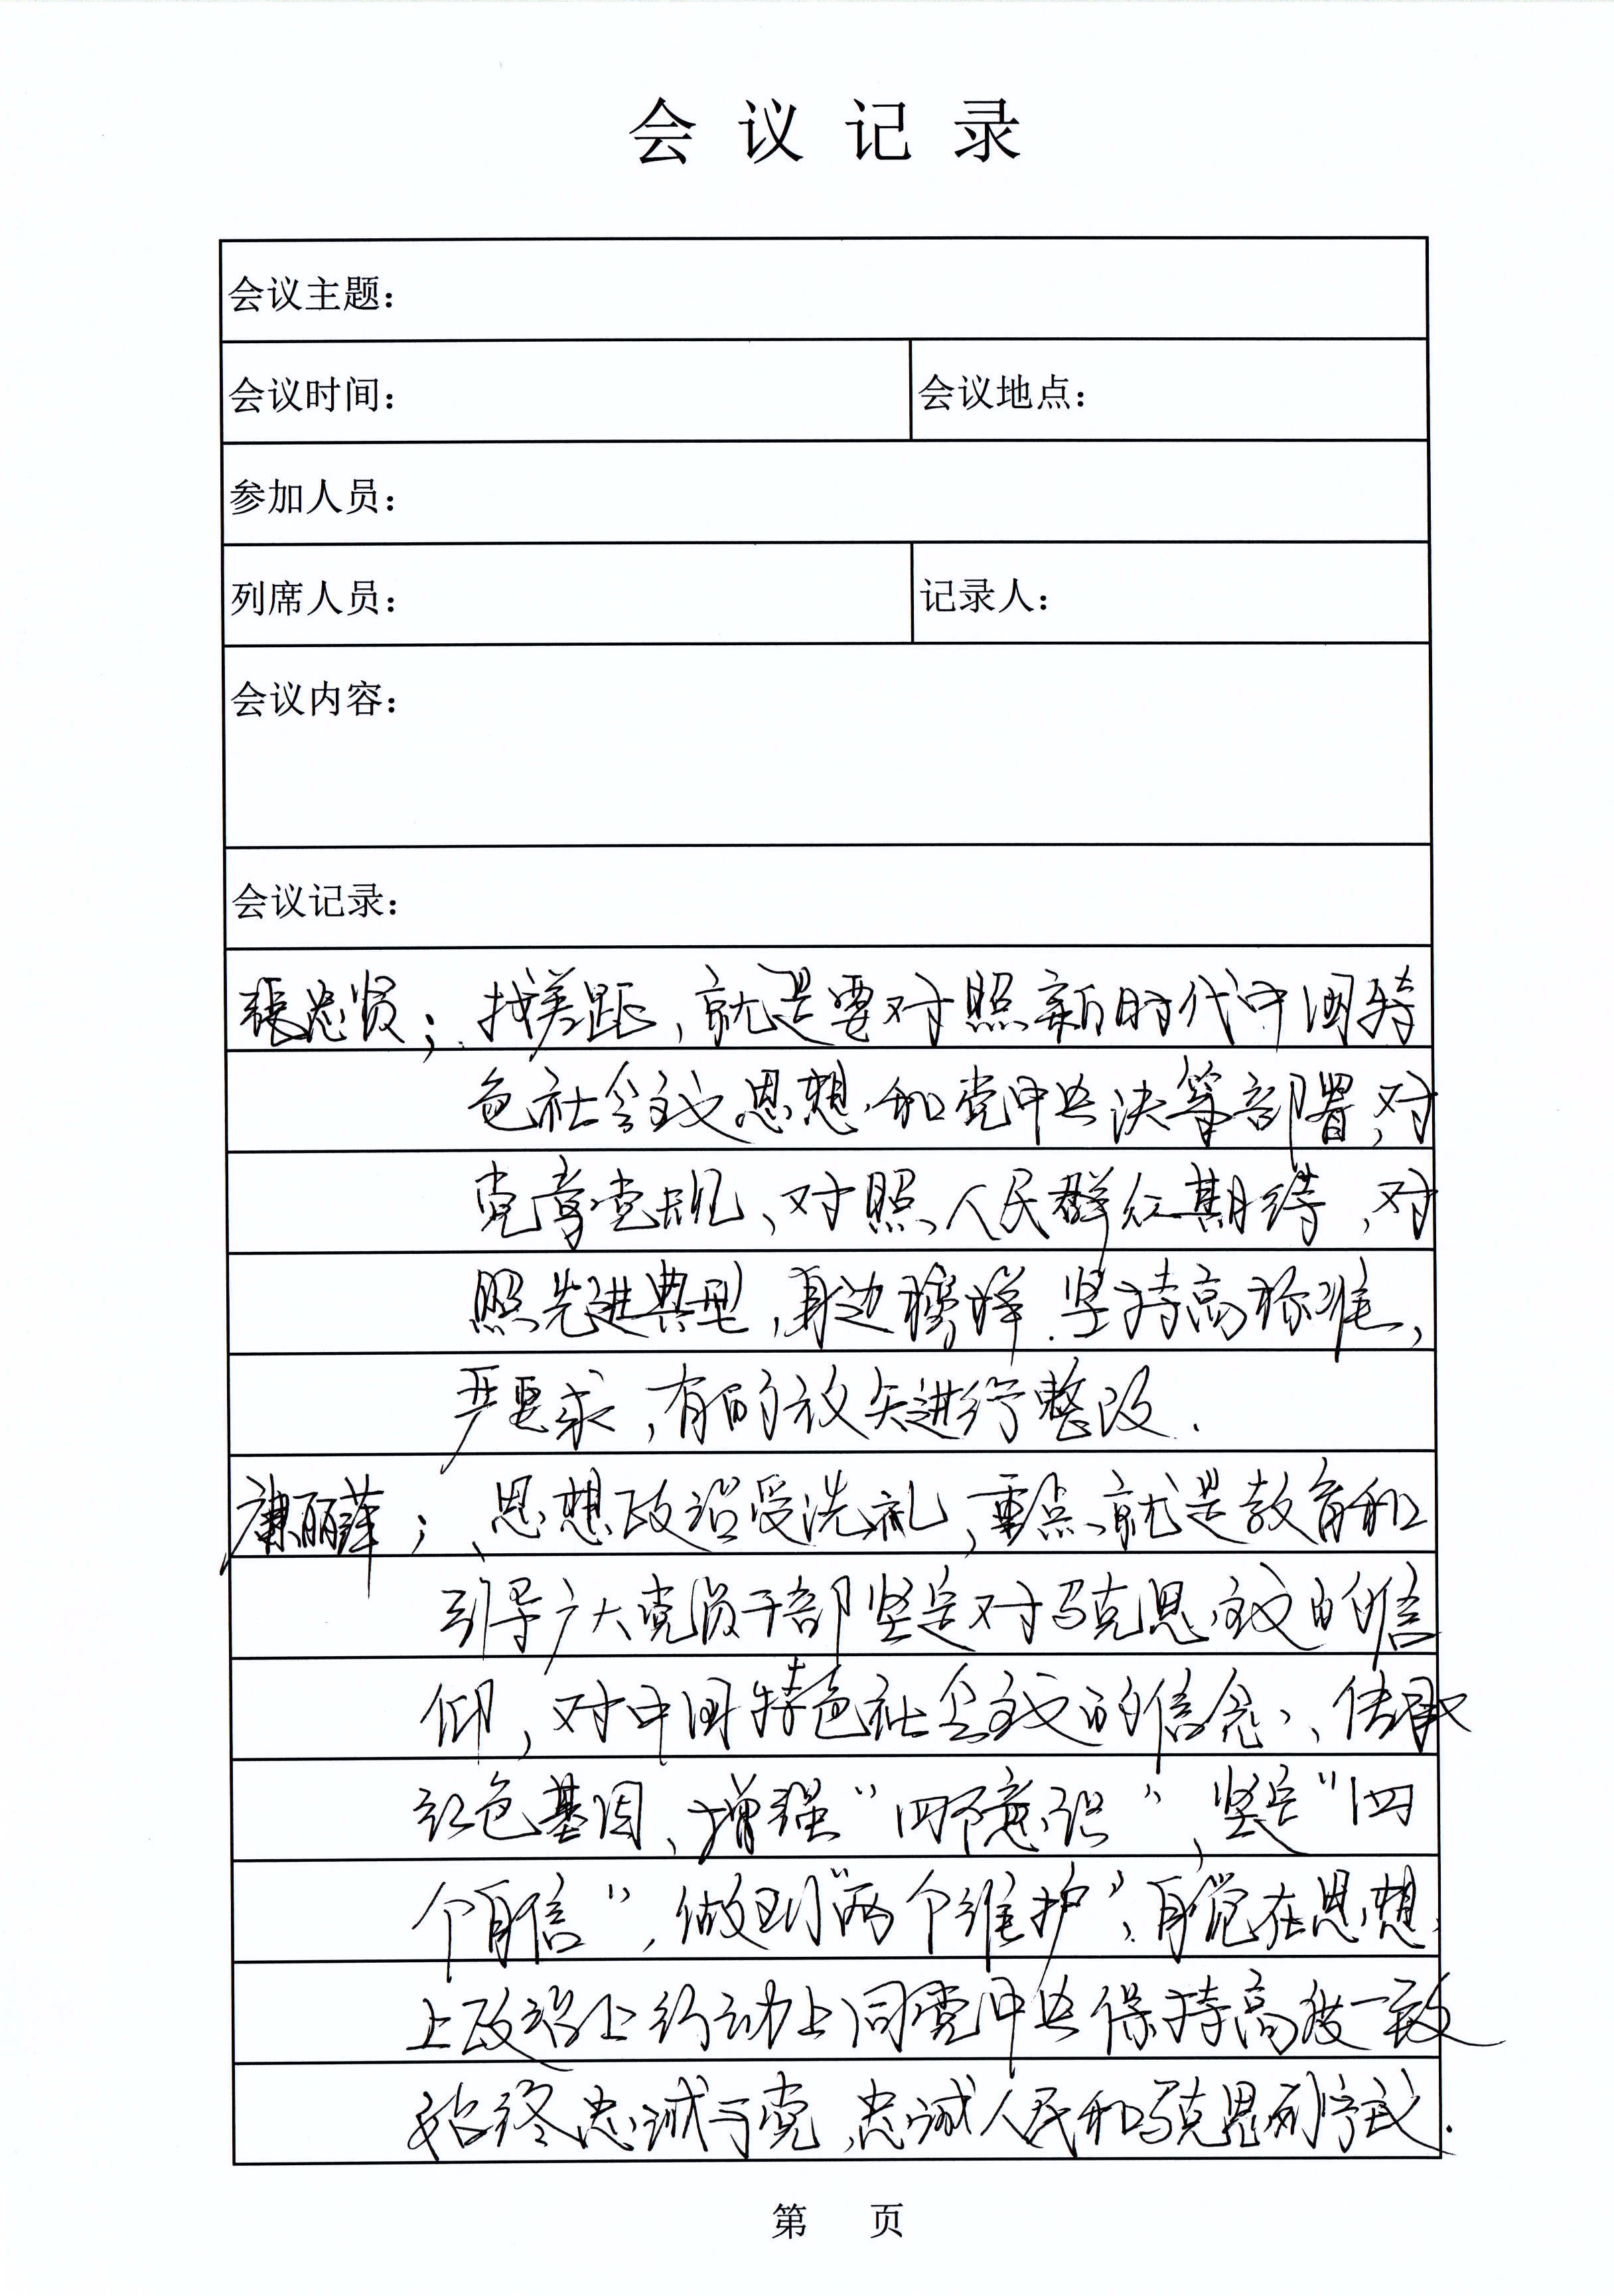 会议记录
会议主题：
会议时间：
会议地点：
参加人员：
列席人员：
记录人：
会议内容：
会议记录：
张忠贤；找差距，就是要对照新时代中国特
色社会主义思想和党中央决策部署，对
党章党规、对照人民群众期待，对
照先进典型，身边榜样.坚持高标准，
严要求，有的放矢进行整改.
康丽萍；思想政治受洗礼，重点就是教育和
引导广大党员干部坚定对马克思主义的信
仰，对中国特色社会主义的信念、传承
红色基因、增强“四个意识”，坚定“四
个自信”，做到“两个维护”，自觉在思想
上政治上行动上同党中央保持高度一致
始终忠诚于党，忠诚人民和马克思列宁主义.
第 页